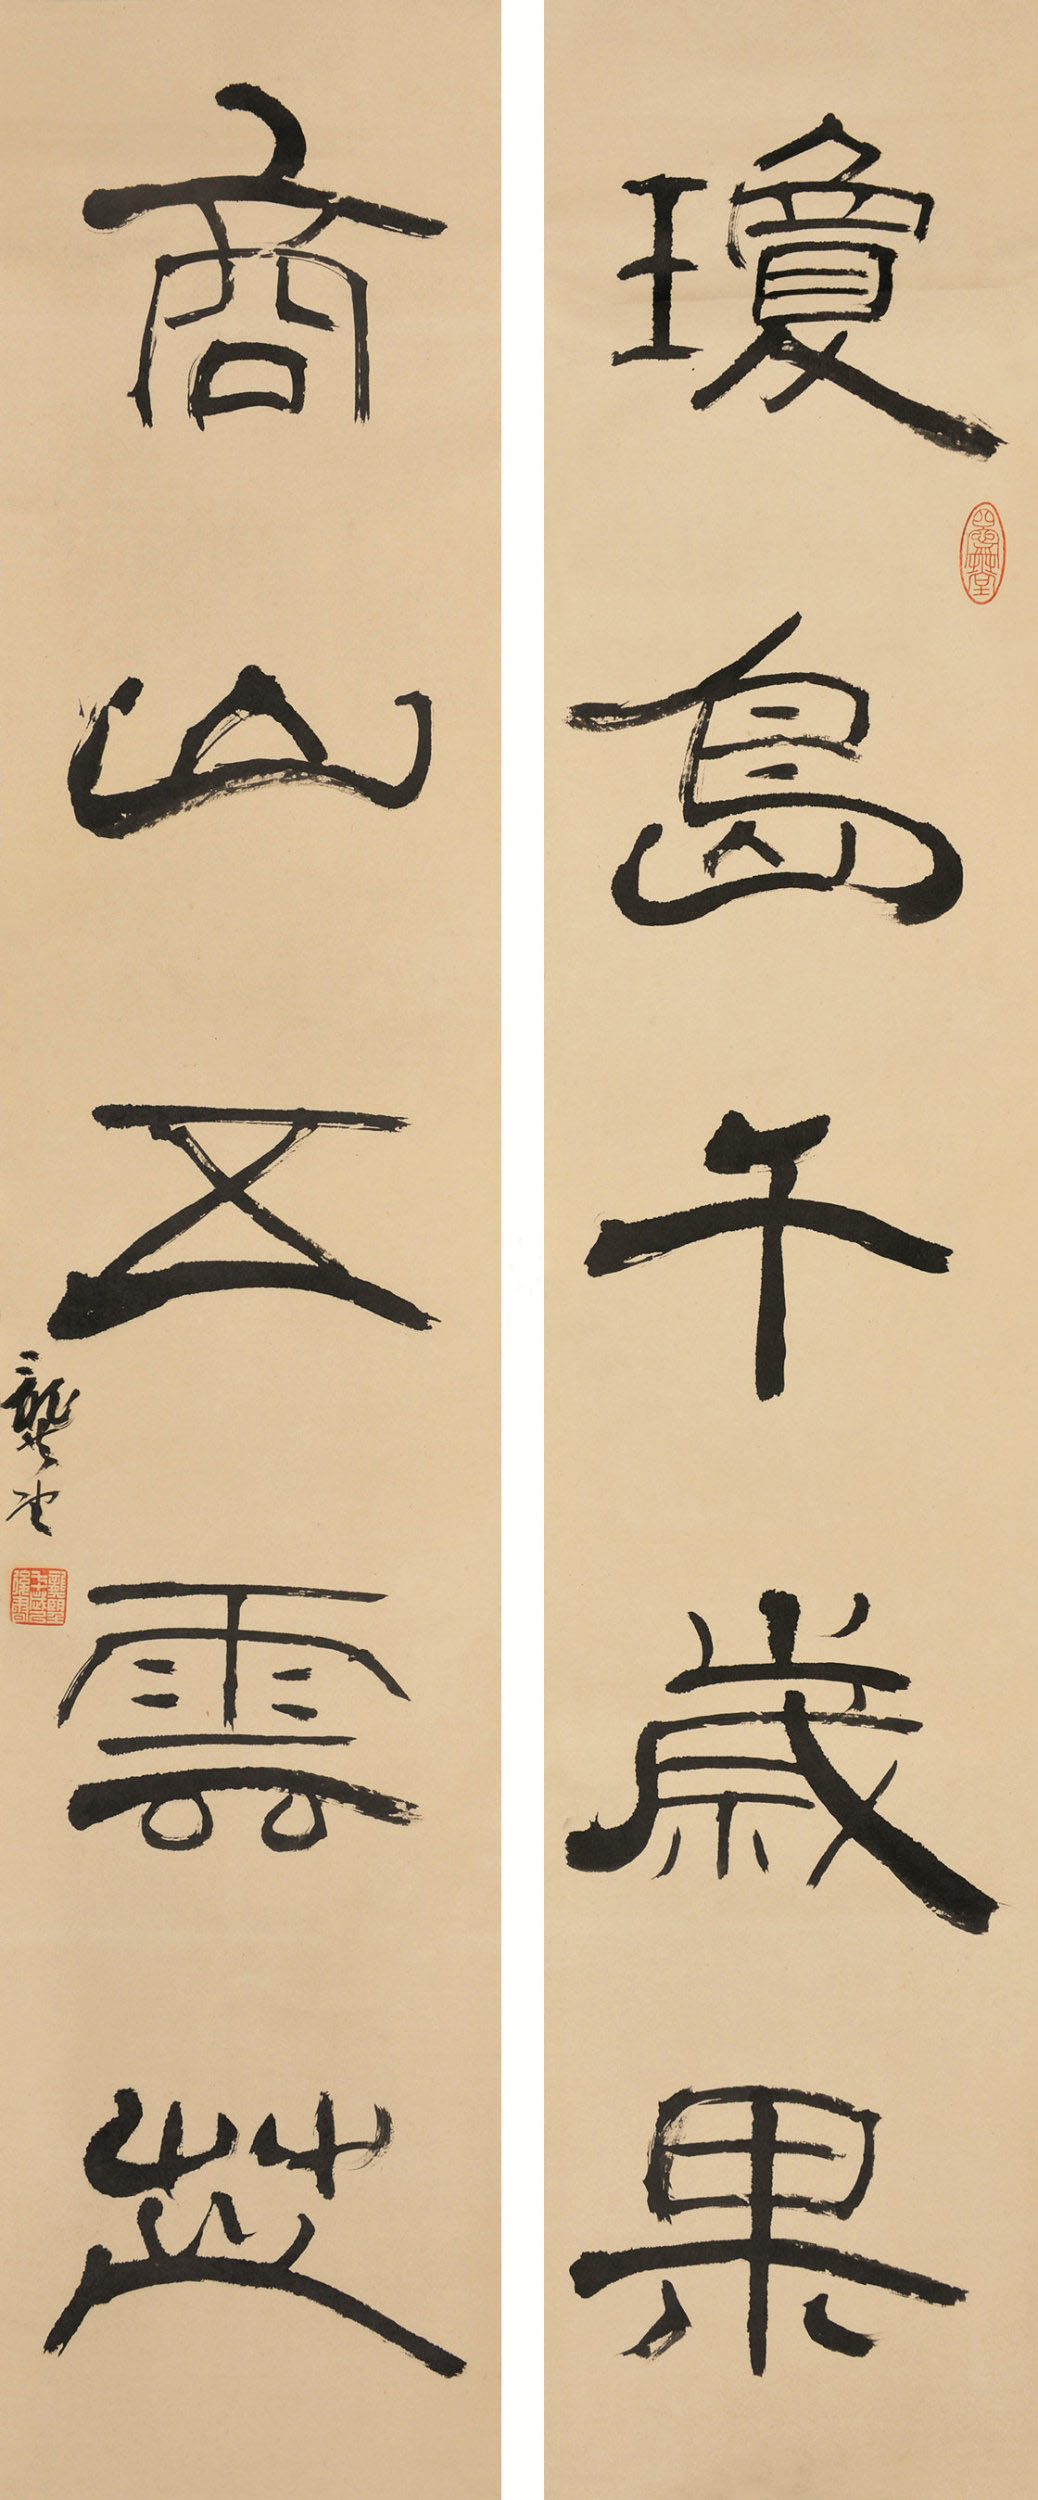 瓊島千歲果
商山五雲芝
龔望